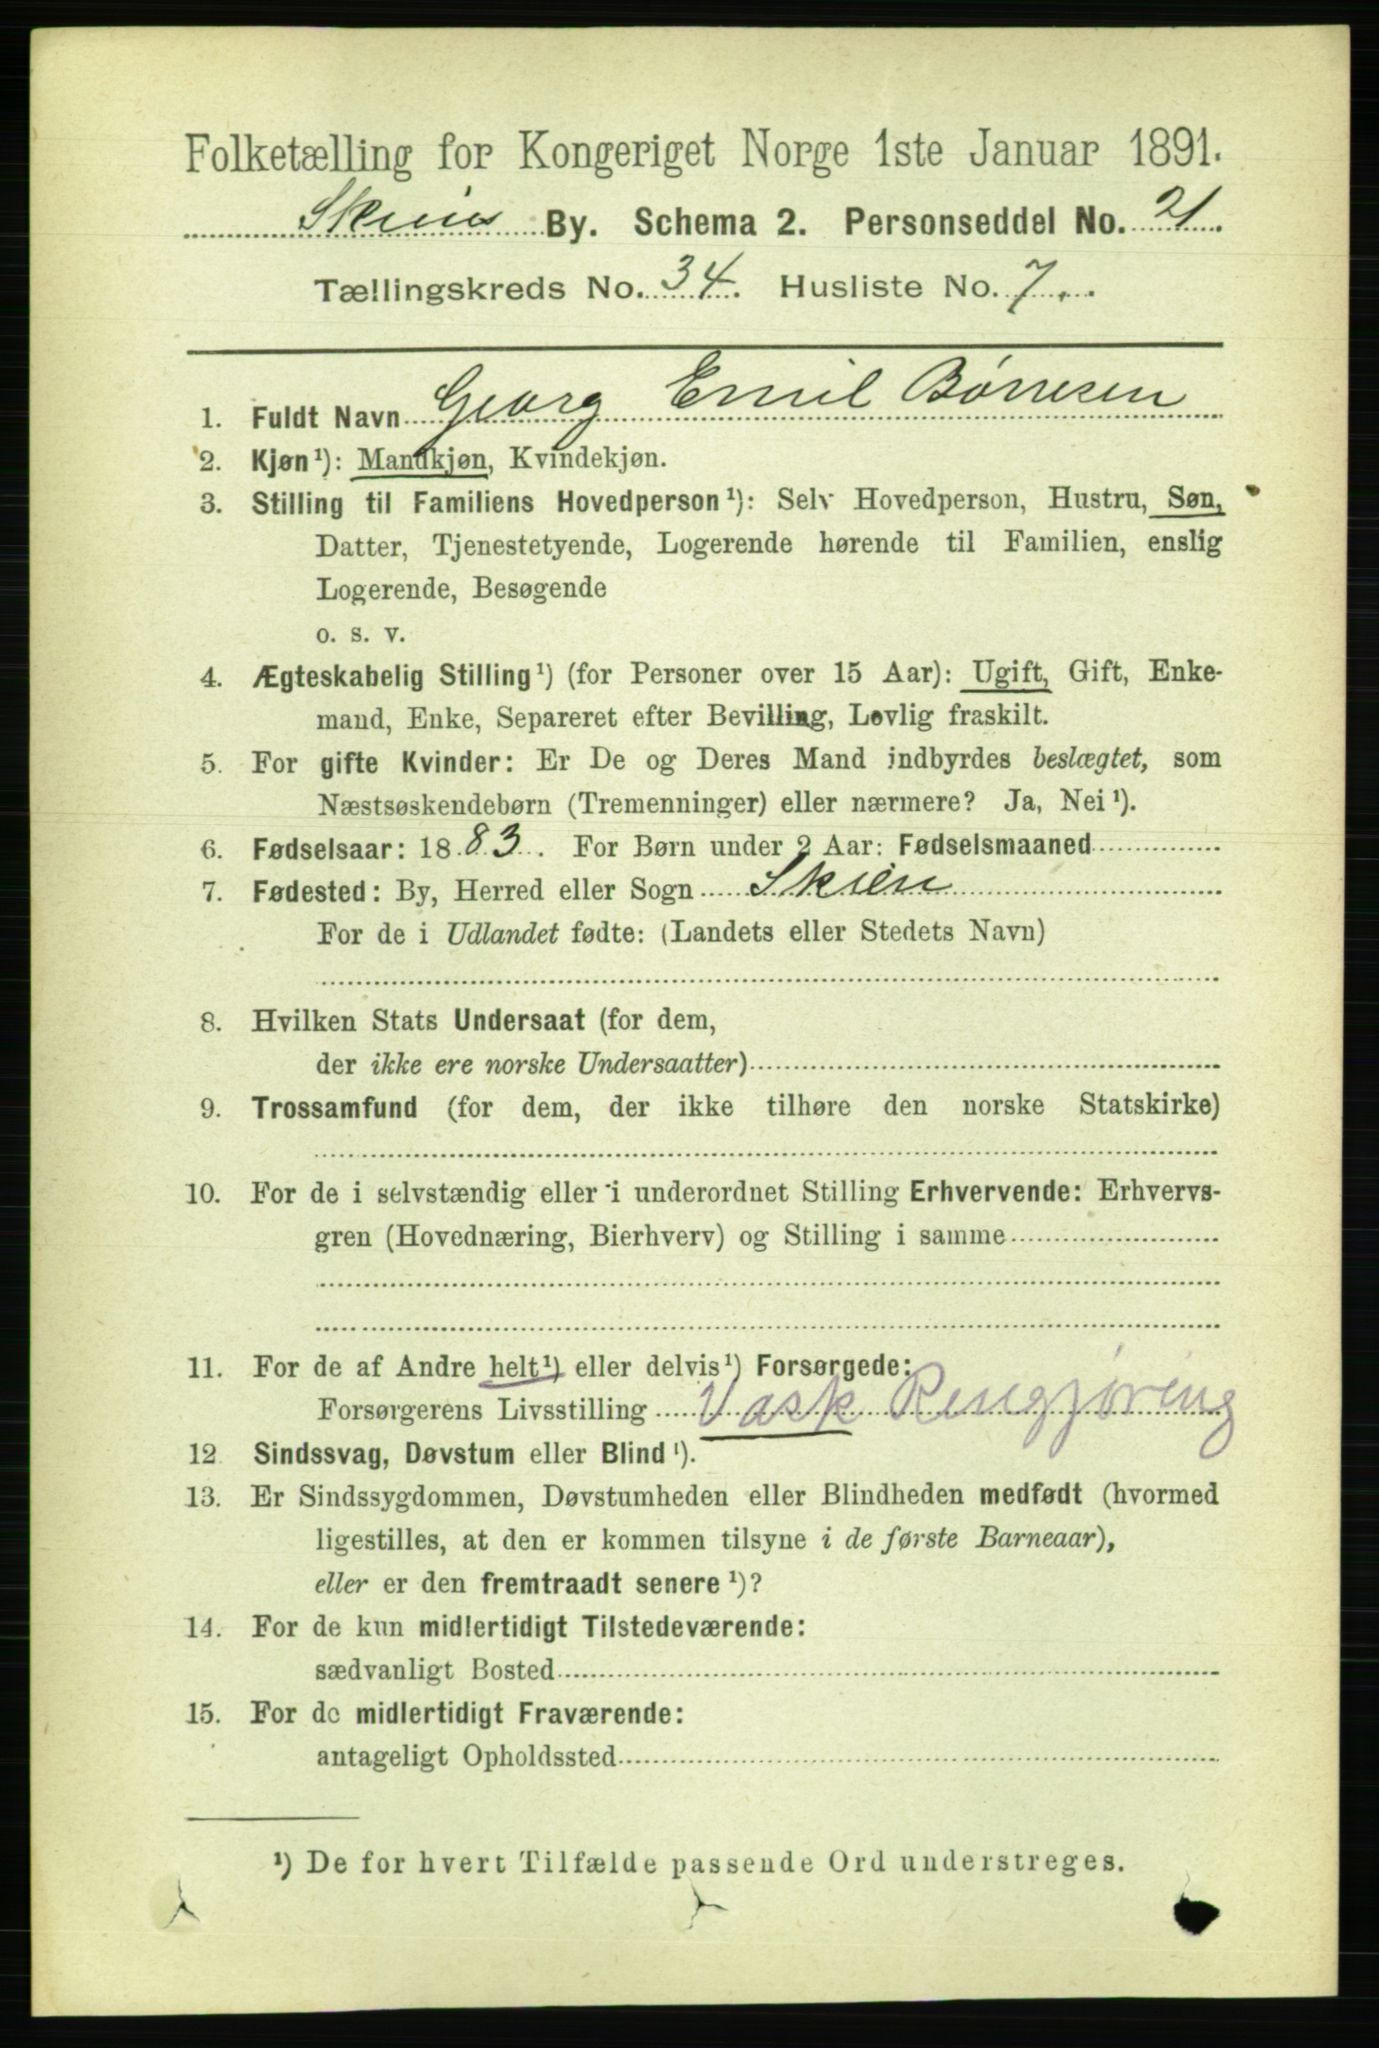 Folketælling for Kongeriget Norge 1ste Januar 1891.
Skiens By. Schema 2. Personseddel No. 21.
Tællingskreds No. 34. Husliste No. 7.
1. Fuldt Navn Georg Emil Børresen
2. Kjøn¹): Mandkjøn, Kvindekjøn.
3. Stilling til Familiens Hovedperson¹): Selv Hovedperson, Hustru, Søn,
Datter, Tjenestetyende, Logerende hørende til Familien, enslig
Logerende, Besøgende
o. s. v.
4. Ægteskabelig Stilling¹) (for Personer over 15 Aar): Ugift, Gift, Enke-
mand, Enke, Separeret efter Bevilling, Lovlig fraskilt.
5. For gifte Kvinder: Er De og Deres Mand indbyrdes beslægtet, som
Næstsøskendebørn (Tremenninger) eller nærmere? Ja, Nei¹).
6. Fødselsaar: 1883. For Børn under 2 Aar: Fødselsmaaned
7. Fødested: By, Herred eller Sogn Skien
For de i Udlandet fødte: (Landets eller Stedets Navn)
8. Hvilken Stats Undersaat (for dem,
der ikke ere norske Undersaatter)
9. Trossamfund (for dem, der ikke tilhøre den norske Statskirke)
10. For de i selvstændig eller i underordnet Stilling Erhvervende: Erhvervs-
gren (Hovednæring, Bierhverv) og Stilling i samme
11. For de af Andre helt¹) eller delvis¹) Forsørgede:
Forsørgerens Livsstilling Vask Rengjøring
12. Sindssvag, Døvstum eller Blind¹).
13. Er Sindssygdommen, Døvstumheden eller Blindheden medfødt (hvormed
ligestilles, at den er kommen tilsyne i de første Barneaar),
eller er den fremtraadt senere¹)?
14. For de kun midlertidigt Tilstedeværende:
sædvanligt Bosted
15. For de midlertidigt Fraværende:
antageligt Opholdssted
¹) De for hvert Tilfælde passende Ord understreges.